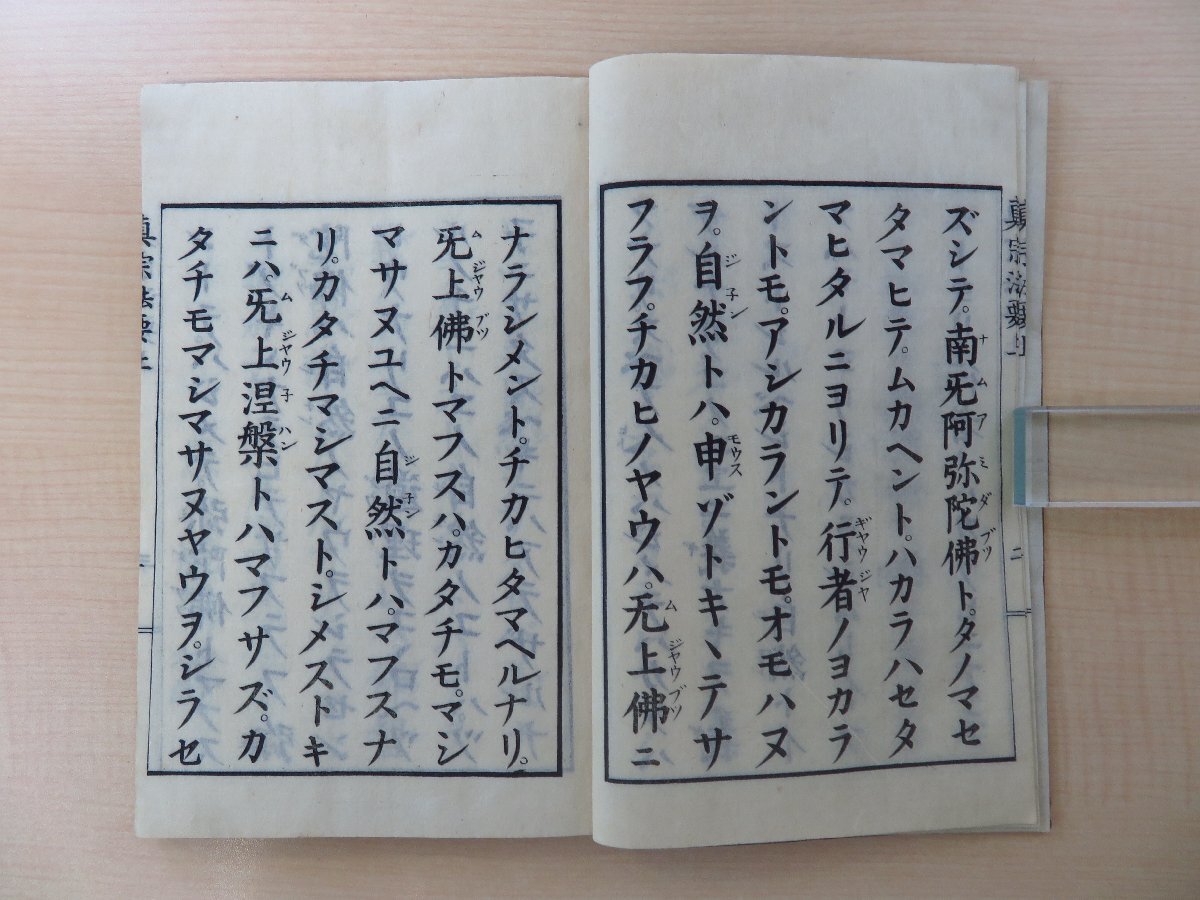 眞宗法要上
二
ズシテ。南无阿弥陀佛ト。タノマセ
ナムアミダブツ
タマヒテ。ムカヘント。ハカラハセタ
マヒタルニヨリテ。行者ノヨカラ
ギヤウジヤ
ントモ。アシカラントモ。オモハヌ
ヲ。自然トハ。申ゾトキヽテサ
ジ子ン
モウス
フラフ。チカヒノヤウハ。无上佛ニ
ムジヤウブツ
ナラシメント。チカヒタマヘルナリ。
无上佛トマフスハ。カタチモ。マシ
ムジヤウブツ
マサヌユヘニ自然トハ。マフスナ
ジ子ン
リ。カタチマシマスト。シメストキ
ニハ。无上涅槃トハマフサズ。カ
ムジヤウ子ハン
タチモマシマサヌヤウヲ。シラセ
眞宗法要上